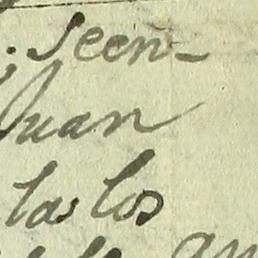 Seen-
Juan
las los